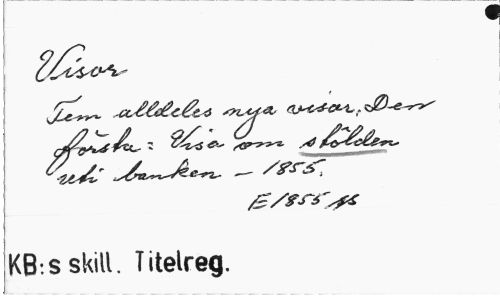 Visor
Fem alldeles nya visor. Den
första: Visa om stölden
uti banken – 1855.
E 1855
KB:s skill. Titelreg.